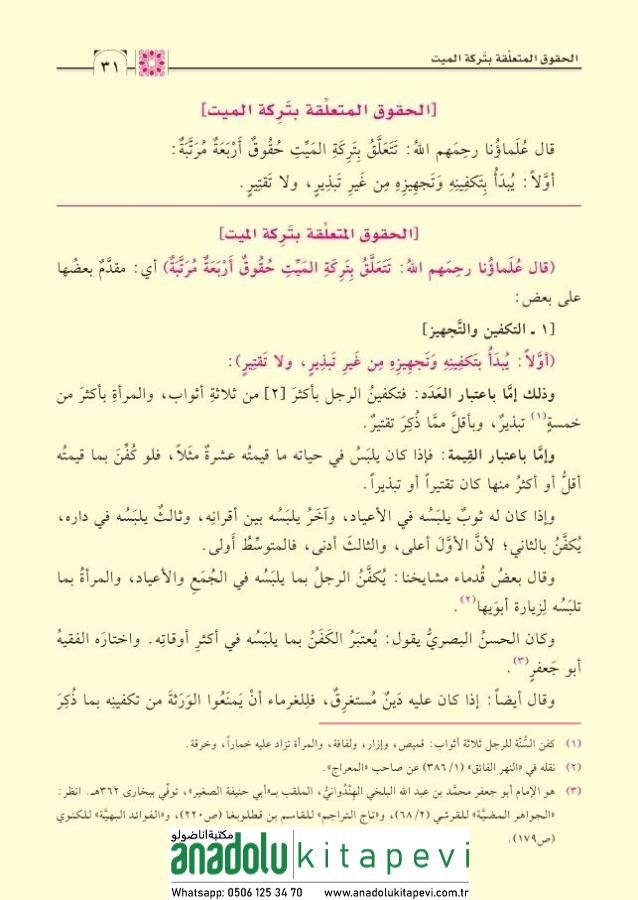 الحقوق المتعلّقة بتَركة الميت
٣١
[الحقوق المتعلِّقة بتَرِكة الميت]
قال عُلَماؤُنا رحِمَهم اللهُ: تَتَعَلَّقُ بِتَرِكَةِ المَيِّتِ حُقُوقٌ أَرْبَعَةٌ مُرَتَّبَةٌ:
أوَّلاً: يُبدَأُ بِتَكفِينِهِ وَتَجهِيزِهِ مِن غَيرِ تَبذِيرٍ، ولا تَقتِيرٍ.
[الحقوق المتعلِّقة بتَرِكة الميت]
(قال عُلَماؤُنا رحِمَهم اللهُ: تَتَعَلَّقُ بِتَرِكَةِ المَيِّتِ حُقُوقٌ أَرْبَعَةٌ مُرَتَّبَةٌ) أي: مقدَّمٌ بعضُها
على بعض:
[١ ـ التكفين والتَّجهيز]
(أوَّلاً: يُبدَأُ بتَكفِينِهِ وَتَجهِيزِهِ مِن غَيرِ تَبذِيرٍ، ولا تَقتِيرٍ):
وذلك إمَّا باعتبار العَدَد: فتكفينُ الرجل بأكثرَ [٢] من ثلاثةِ أثواب، والمرأةِ بأكثرَ من
خمسةٍ(١) تبذيرٌ، وبأقلَّ ممَّا ذُكِرَ تقتيرٌ.
وإمَّا باعتبار القِيمة: فإذا كان يلبَسُ في حياته ما قيمتُه عشرةٌ مثَلاً، فلو كُفِّنَ بما قيمتُه
أقلُّ أو أكثرُ منها كان تقتيراً أو تبذيراً.
وإذا كان له ثوبٌ يلبَسُه في الأعياد، وآخَرُ يلبَسُه بين أقرانِه، وثالثٌ يلبَسُه في داره،
يُكفَّنُ بالثاني؛ لأنَّ الأوَّلَ أعلى، والثالثَ أدنى، فالمتوسِّطُ أَولى.
وقال بعضُ قُدماء مشايخنا: يُكفَّنُ الرجلُ بما يلبَسُه في الجُمَعِ والأعياد، والمرأةُ بما
تلبَسُه لِزيارة أبوَيها(٢).
وكان الحسنُ البصريُّ يقول: يُعتبَرُ الكَفَنُ بما يلبَسُه في أكثرِ أوقاتِه. واختارَه الفقيهُ
أبو جَعفرٍ(٣).
وقال أيضاً: إذا كان عليه دَينٌ مُستغرِقٌ، فلِلغرماء أنْ يَمنَعُوا الوَرَثةَ من تكفينِه بما ذُكِرَ
(١) كفن السُّنّة للرجل ثلاثة أثواب: قميص، وإزار، ولفافة، والمرأة تزاد عليه خماراً، وخرقة.
(٢) نقله في «النهر الفائق» (١/ ٣٨٦) عن صاحب «المعراج».
(٣) هو الإمام أبو جعفر محمَّد بن عبد الله البلخي الهِنْدُوانيُّ، الملقب بـ«أبي حنيفة الصغير»، توفّي ببخارى ٣٦٢هـ. انظر:
«الجواهر المضيَّة» للقرشي (٢/ ٦٨)، و«تاج التراجم» للقاسم بن قطلوبغا (ص٢٢٠)، و«الفوائد البهيَّة» للكنوي
(ص١٧٩).
مكتبة اناضولو
anadolu kitapevi
Whatsapp: 0506 125 34 70 www.anadolukitapevi.com.tr